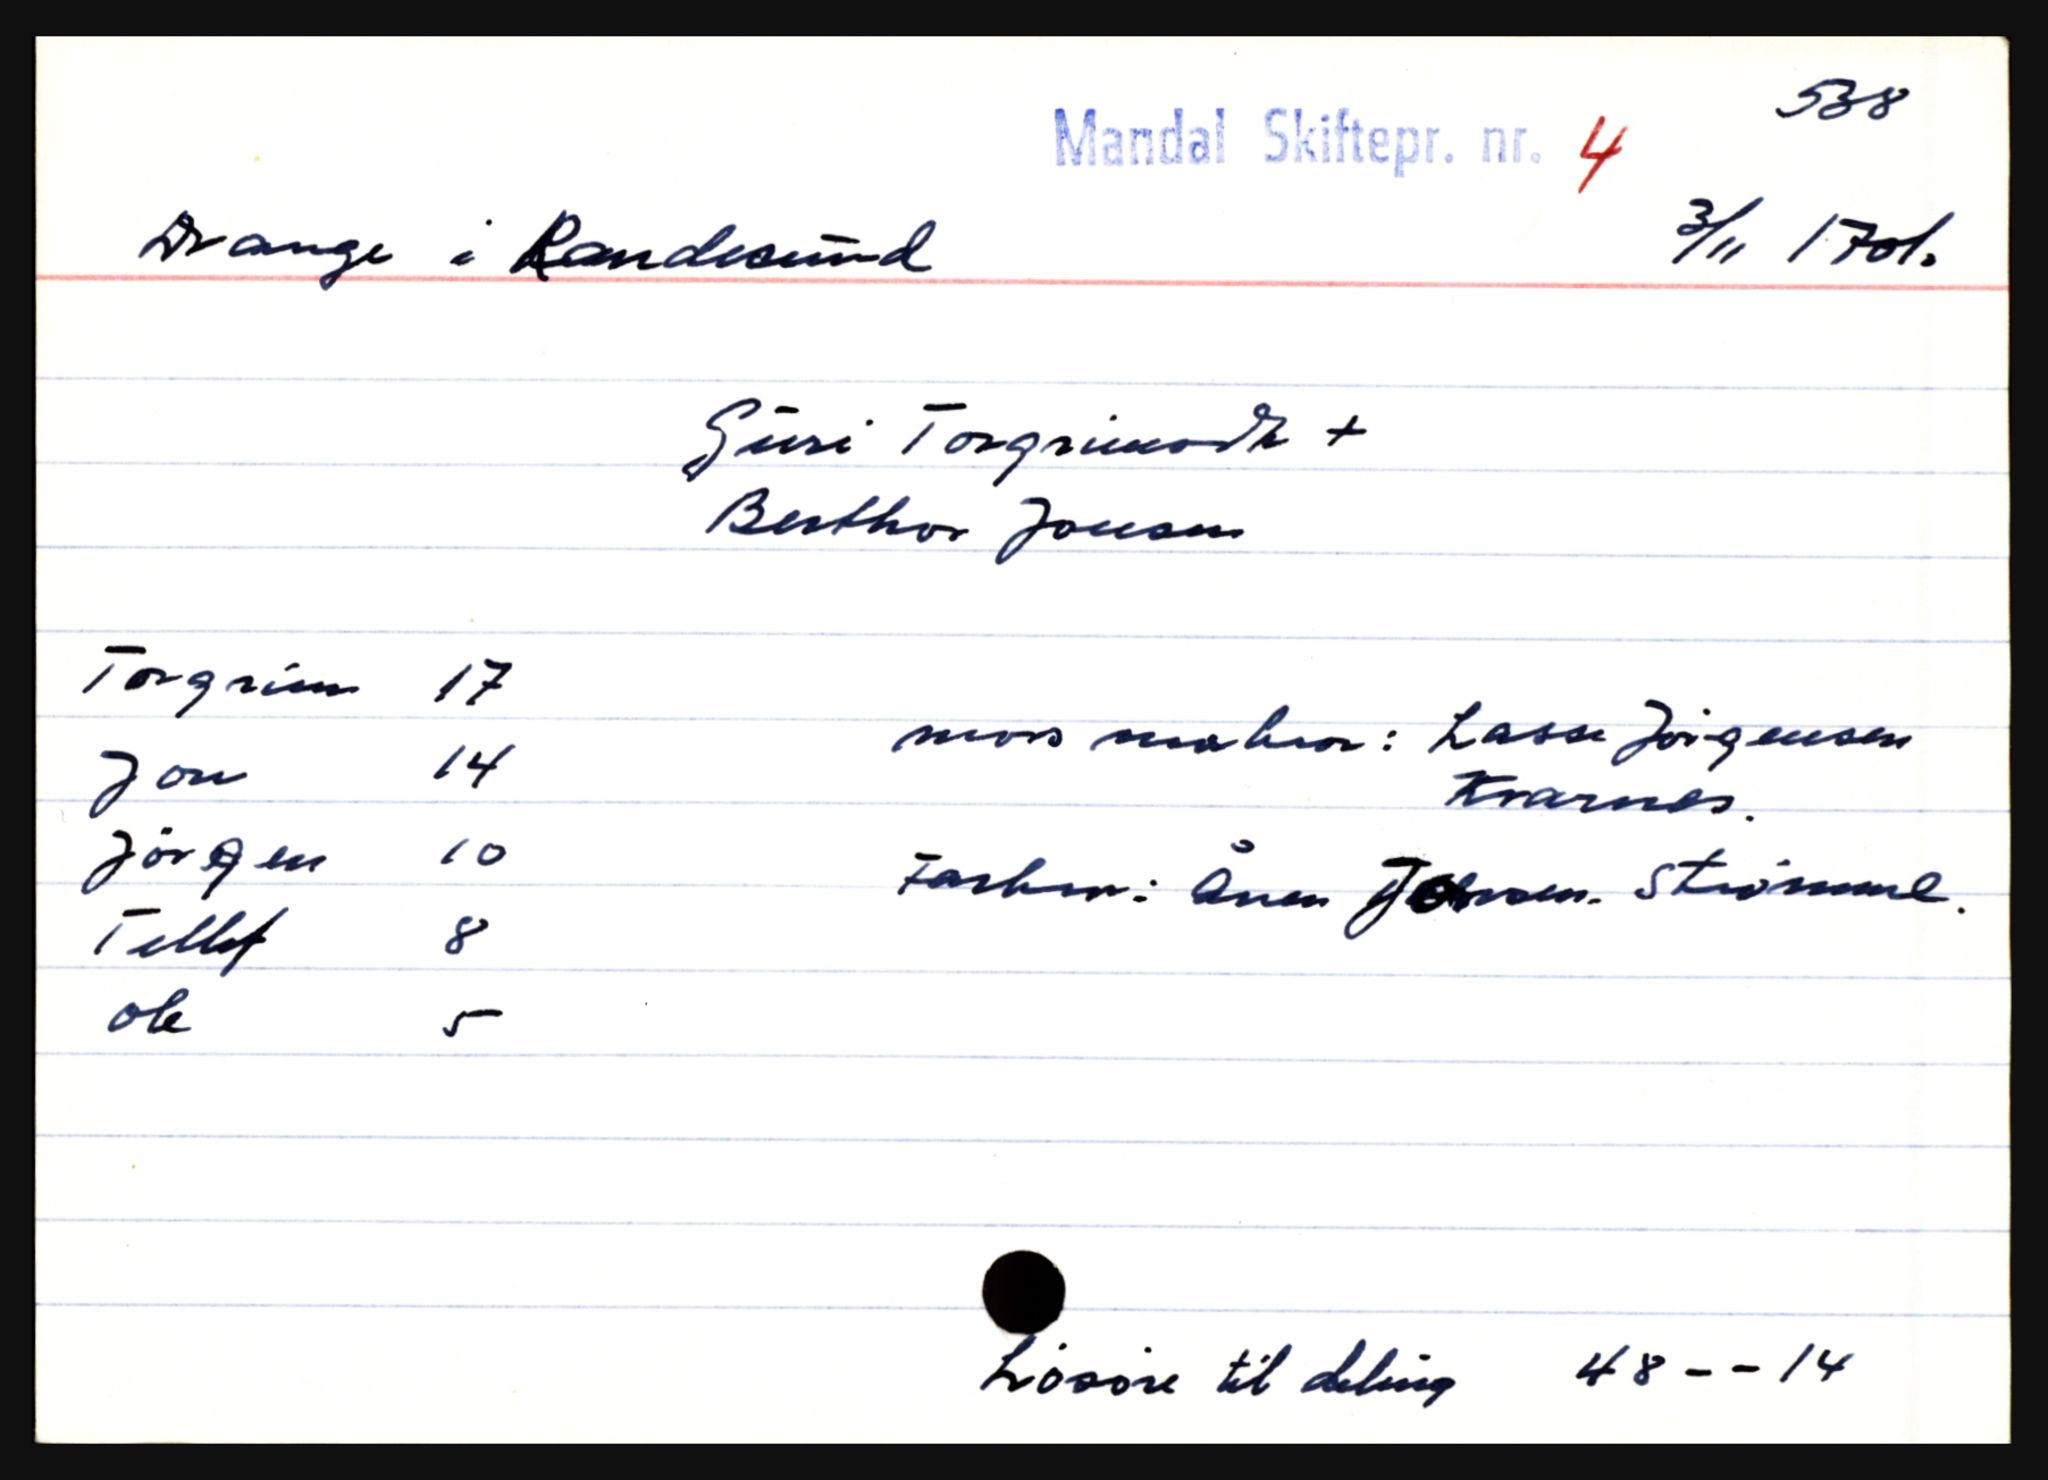 538
Mandal Skiftepr. nr. 4
Drange i Randesund 3/11 1701.
Guri Torgrimsdtr +
Berthor Jonsen
Torgrim 17
mors morbror: Lasse Jörgensen
Jon 14
Kvarnes.
Jörgen 10
Farbror: Ånen Jonsen. Strömme.
Tellef 8
Ole 5
Lösöre til deling 48 - - 14